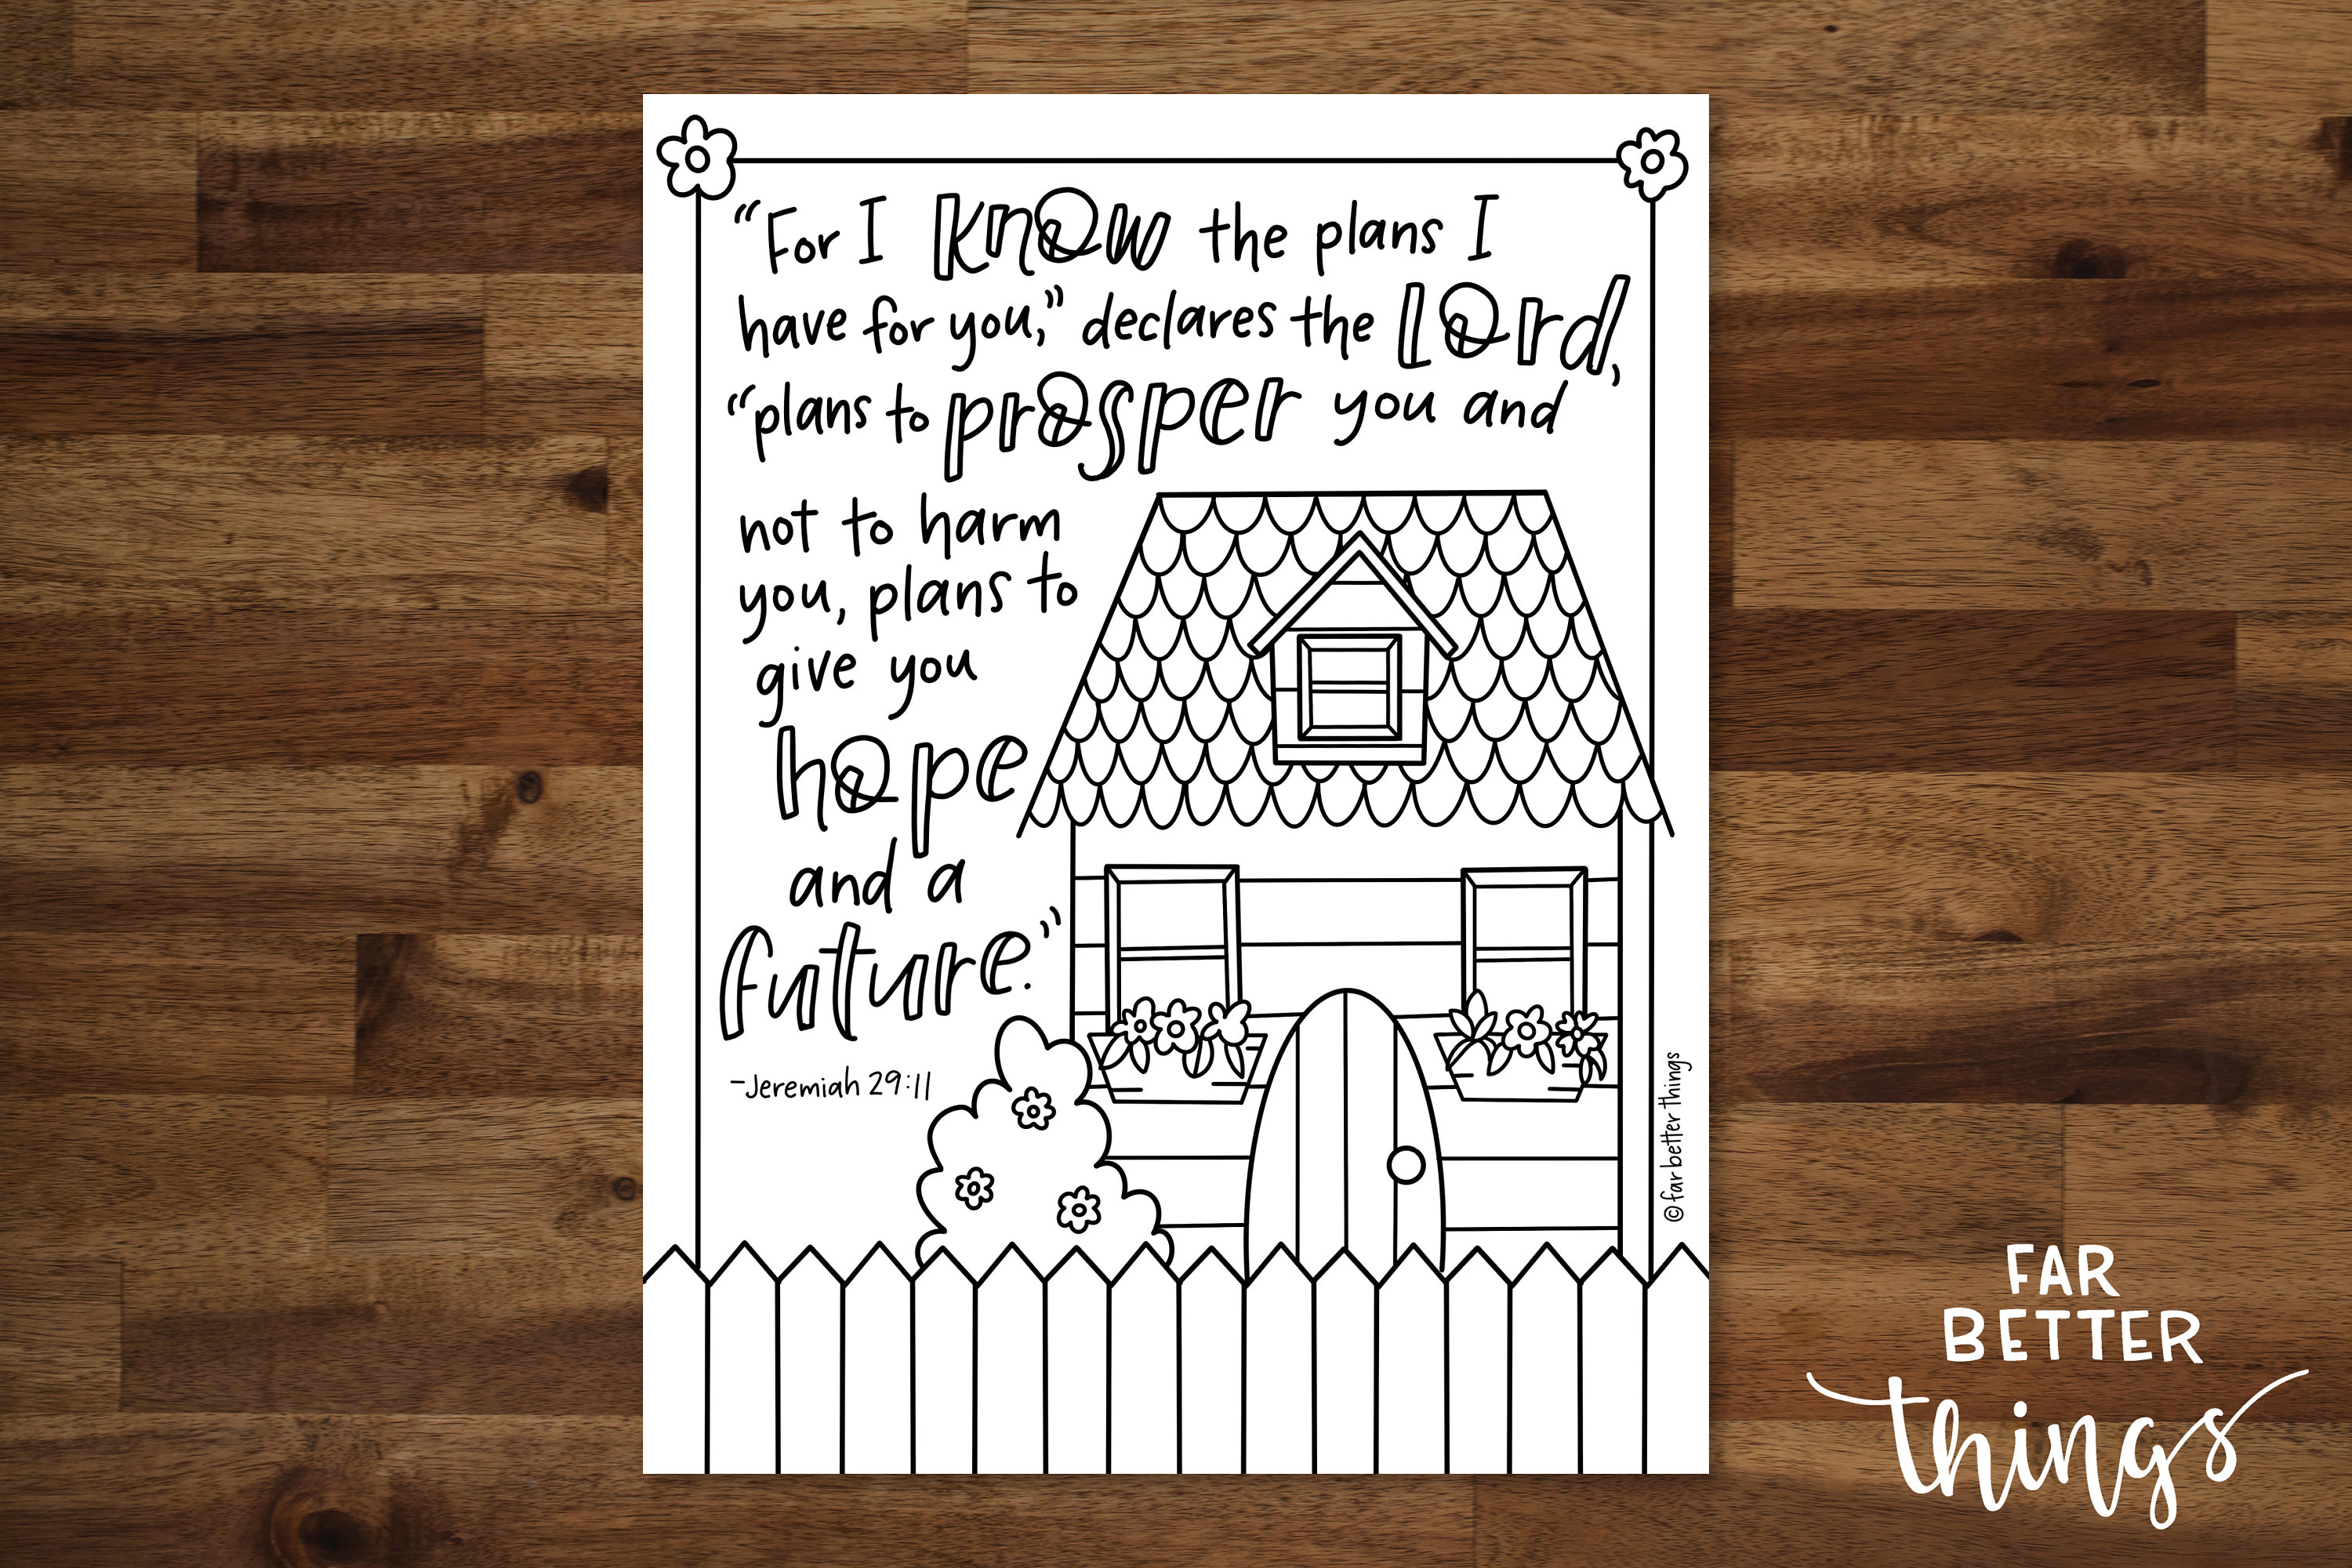 “For I know the plans I
have for you,” declares the Lord,
“plans to prosper you and
not to harm
you, plans to
give you
hope
and a
future.”
-Jeremiah 29:11
© far better things
FAR
BETTER
things